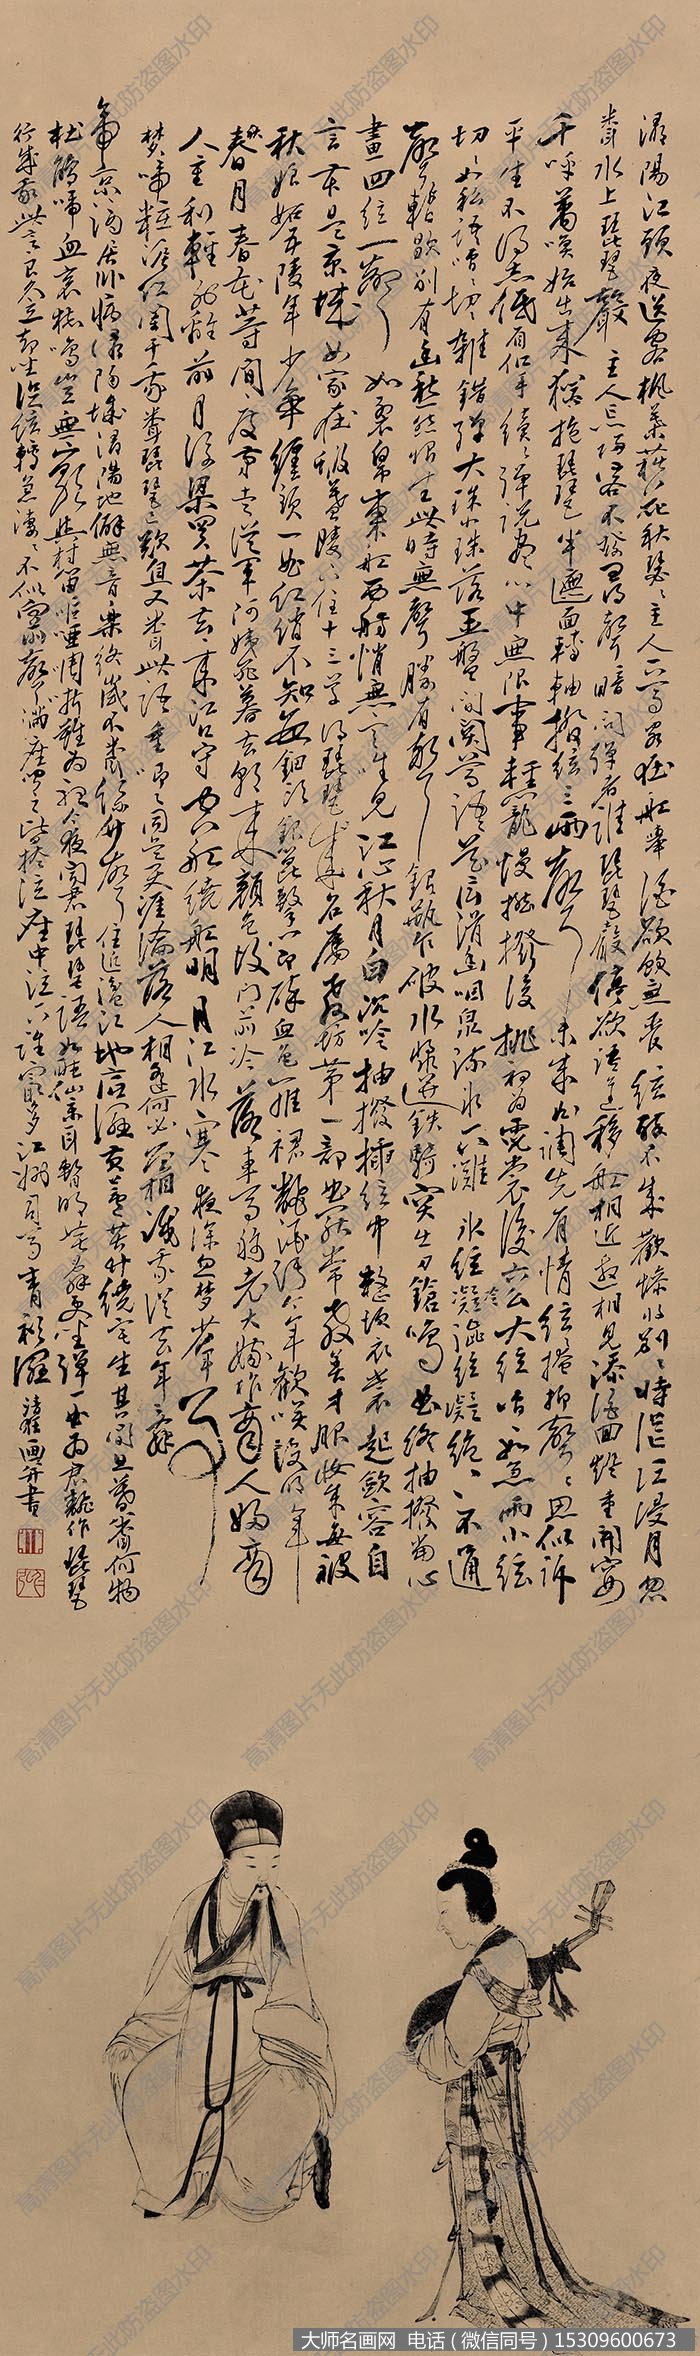 潯陽江頭夜送客楓葉荻花秋瑟〻主人下馬客在舡舉酒欲飲無管絃醉不成歡慘將別〻時茫〻江浸月忽
聞水上琵琶聲主人忘歸客不發尋聲暗問彈者誰琵琶聲停欲語遲移舡相近邀相見添酒回燈重開宴
千呼萬喚始出來猶抱琵琶半遮面轉軸撥絃三兩聲未成曲調先有情絃〻掩抑聲〻思似訴
平生不得志低眉信手續〻彈說盡心中無限事輕攏慢撚撥復挑初為霓裳後六幺大絃嘈〻如急雨小絃
切〻如私語嘈〻切〻雜錯彈大珠小珠落玉盤間關鶯語花底滑幽咽泉流氷下灘氷絃冷澀絃凝絕〻不通
聲暫歇別有幽愁暗恨生此時無聲勝有聲銀瓶乍破水漿迸鐵騎突出刀鎗鳴曲終抽撥當心
畫四絃一聲如裂帛東舡西舫悄無言唯見江心秋月白沉吟抽撥插絃中整頓衣裳起斂容自
言本是京城女家在蝦蟇陵下住十三學得琵琶成名屬教坊第一部曲罷常教善才服妝成每被
秋娘妬五陵年少爭纏頭一曲紅綃不知數鈿頭銀篦擊節碎血色羅裙翻酒污今年歡笑復明年
秋月春花等閒度弟走從軍阿姨死暮去朝來顏色故門前冷落車馬稀老大嫁作商人婦商
人重利輕別離前月浮梁買茶去〻來江口守空舡繞舡明月江水寒夜深忽夢少年事
夢啼粧淚紅闌干我聞琵琶已歎息又聞此語重唧〻同是天涯淪落人相逢何必曾相識我從去年辭
帝京謫居臥病潯陽城潯陽地僻無音樂終歲不聞絲竹聲住近湓江地低濕黃蘆苦竹繞宅生其間旦暮聞何物
杜鵑啼血哀猿鳴豈無山歌與村笛嘔啞嘲哳難為聽今夜聞君琵琶語如聽仙樂耳暫明莫辭更坐彈一曲為君翻作琵琶
行感我此言良久立却坐促絃〻轉急淒〻不似向前聲滿座聞之皆掩泣座中泣下誰最多江州司馬青衫濕 清狂畫并書
高清图片无此防盗图水印
大师名画网 电话（微信同号）15309600673